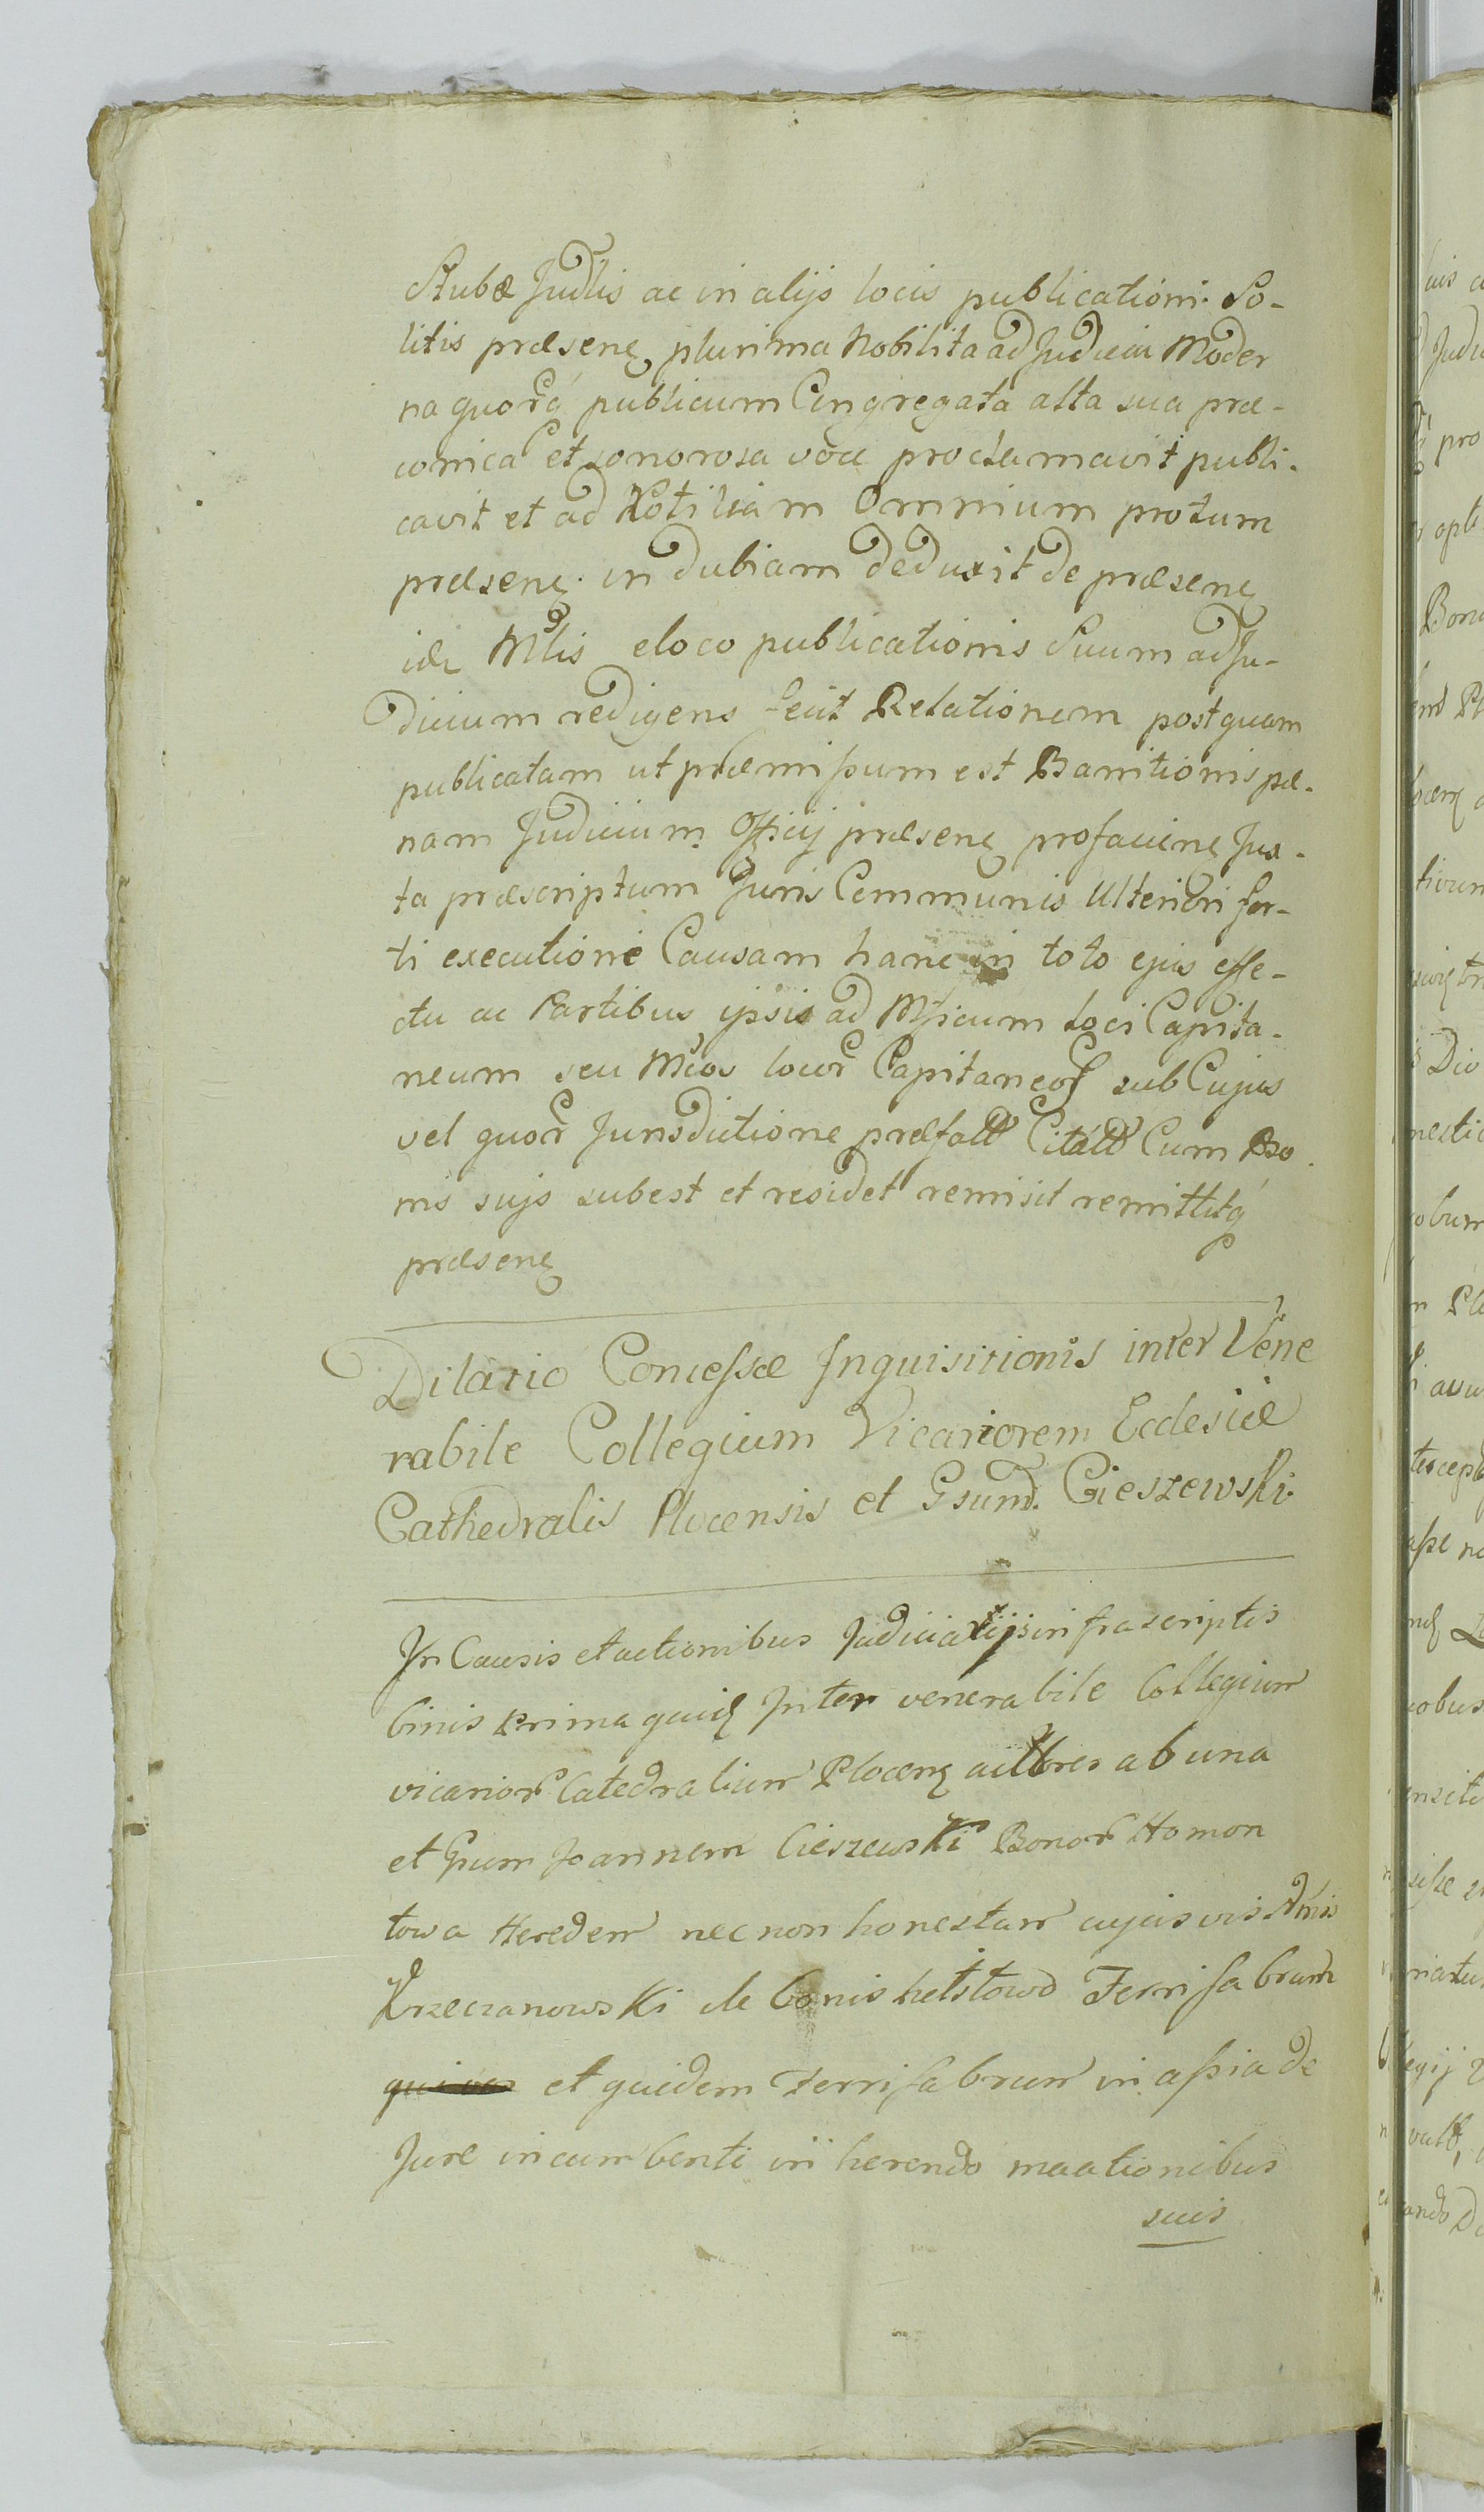 Stubæ Judlis ac in alijs locis publicationi So-
litis præsenę plurima Nobilita ad Judicia Moder
na quorq́ publicum Congregata alta sua præ-
conica et sonorosa voce proclamavit publi-
cavit et ad Notitiam Omnium protum
præsenę in dubiam deduxit de præsenę
idę Mlis eloco publicationis Suum ad Ju-
dicium redigens fecit Relationem postquam
publicatam ut præmissum est Banitionis pæ-
nam Judicium Officij præsenę profacienę Jux-
ta præscriptum Juris Communis Ulteriori for-
ti executione Causam hanc in toto ejus effe-
ctu ac Partibus ipsis ad Mficum loci Capita-
neum seu Mcos locor̃ Capitaneos sub Cujus
vel quor̃ Jurisdictione præfatt Citatt Cum Bo
nis suis subest et residet remisit remittitq́
præsenę
Dilatio Concessæ Inquisitionis inter Vene
rabile Collegium Vicariorem Ecclesiæ
Cathedralis Plocensis et Gsumd. Cieszewski
In Causis et actionibus Judiciarijs infrascriptis
binis prima quidę Inter venerabile Collegium
vicarior̃ Catedralium Plocenę actores ab una
et Gsum Joannem Cieszewski Bonor̃ Homon
towa Heredem nec non honestum cujusvis Nmis
Krzeczanowski de bonis hetstowo Ferrifabrum
et quidem Ferrifabrum in assia de
Jure incumbenti in herendo maationibus
suis